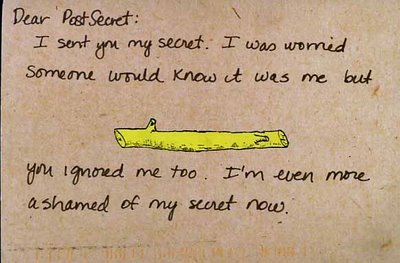 Dear PostSecret:
I sent you my secret. I was worried
someone would know it was me but
you ignored me too. I'm even more
ashamed of my secret now.